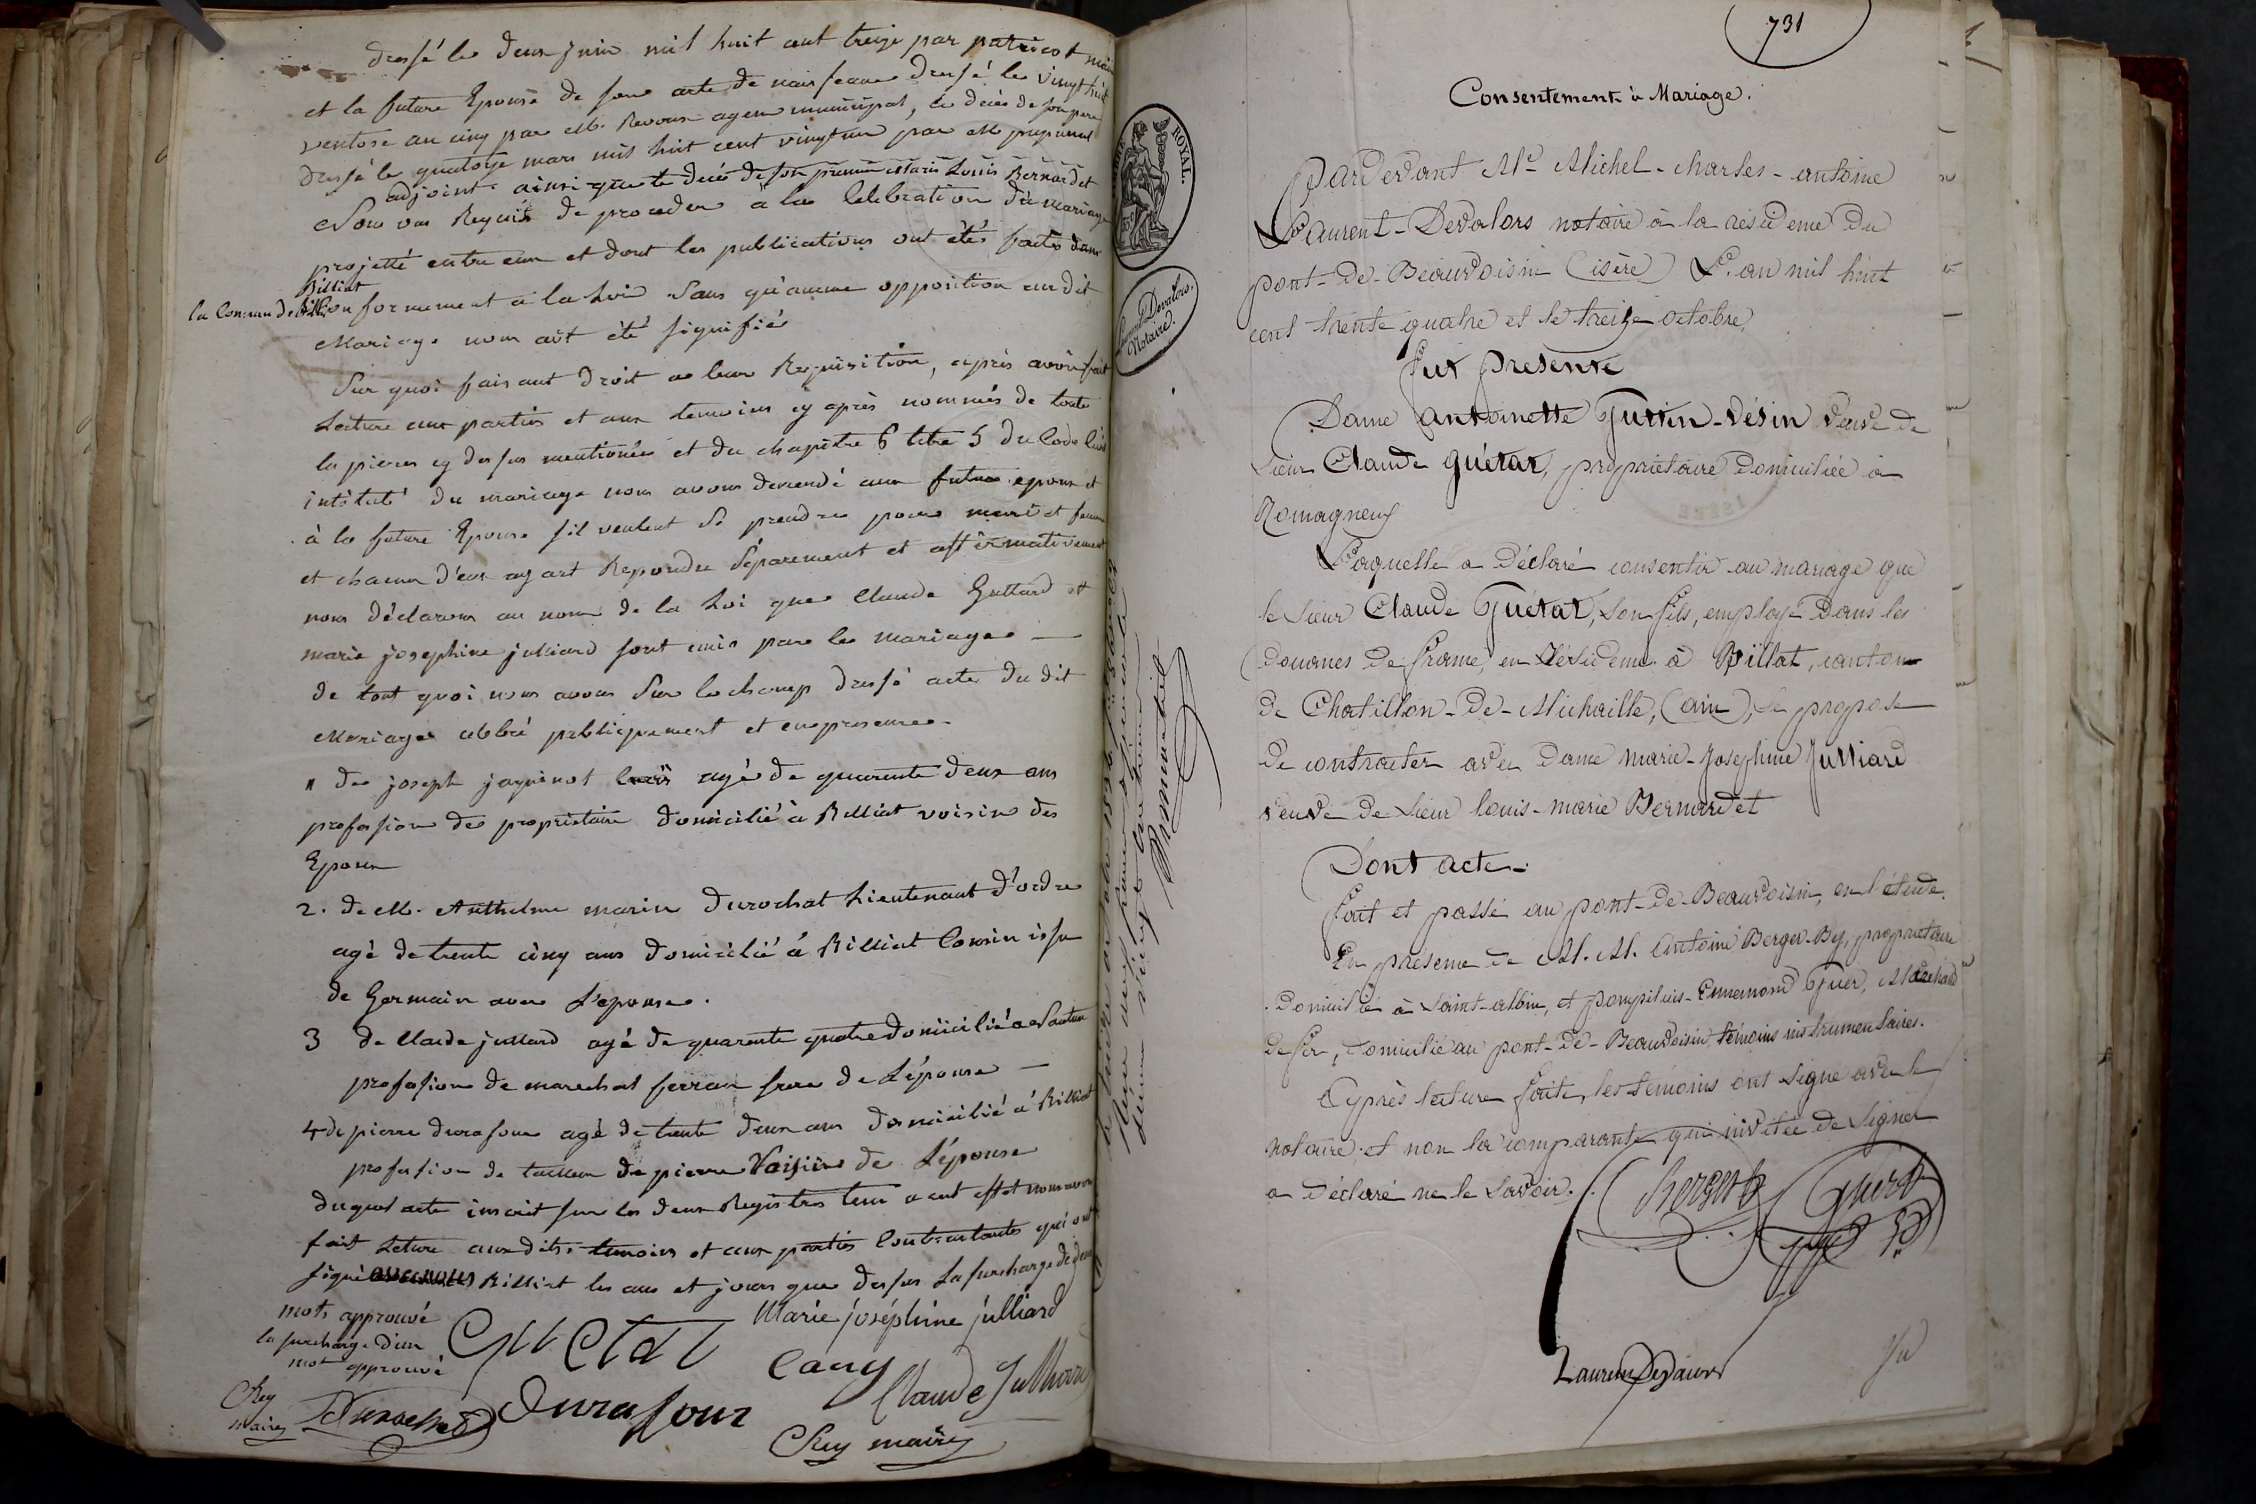 dressé le deux juin mil huit cent treize par patricot maire
et la future Epouse de son acte de naissance dressé le vingt huit
ventose an cinq par M. agen municipal, le décès de son père
dressé le quatorze mars mil huit cent vingt un par M
adjoint. ainsi que le décès de son premier Maris Louis Bernardet
Nous ons Requis de proceder à la Celebration du mariage
projetté entre eux et dont les publications ont étés faites dans
Billiat
la Commun de conformement a la Loi Sans qu'aucune opposition au dit
Mariage nous ait été signifiée
Sur quoi faisant droit a leur Requisition, après avoir fait
Lecture aux parties et aux temoins cy après nommés de toute
les pieces cy dessus mentionées et du chapitre 6 titre 5 du Code Civil
intitulé du mariage nous avons demendé aux futur epoux et
à la future Epouse s'il veulent se prendre pour mari et femme
et chacun d'eux ayant Repondu Séparement et affirmativement
nous déclarons au nom de la Loi que Claude Guttard et
marie josephine julliard sont unis par le mariage —
de tout quoi nous avons Sur le champ dressé acte du dit
Mariage publiquement et en presence
" de joseph jaquinot agé de quarente deux ans
profession de propriétaire domicilié à Billiat voisin des
Epoux
2. de M. Anthelme marin Durochat Lieutenant d'ordre
agé de trente cinq ans domicilié á Billiat Cousin issu
de Germain avec L'epouse.
3 de Claude julliard agé de quarente quatre domicilié a
profession de marechal ferran frere de L'épouse —
4 de pierre durafour agé de trente deux ans domicilié a Billiat
profession de tailleur de pierre Voisin de L'épouse
duquel acte inscrit sur les deux Registres tenu a cet effet nous avons
fait Lecture aux dits temoins et aux parties Contractantes qui ont
signé avec nous Billiat les ans et jours que dessus La surcharge de deux
mots approuvé
la surcharge d'un
mot approuvé
Guetat
Marie joséphine julliard
Claude Julliard
Rey
maire
Durochat
Durafour
Rey maire
ROYAL.
Laurent Devalors.
Notaire.
731
Consentement à Mariage.
Pardevant Me Michel-Charles-antoine
Laurent-Devalors notaire à la résidence du
pont-de-Beauvoisin (isère) L'an mil huit
cent trente quatre et le treize octobre,
fut presente
Dame antoinette Guttin-Vésin Veuve de
Sieur Claude Guétat, propriétaire domiciliée à
Romagneux
Laquelle a Déclaré consentir au mariage que
le Sieur Claude Guétat, son fils, employé Dans les
Douanes De france, en Résidence à Billat, canton
De Chatillon-De-Michaille, (ain), se propose
De contracter avec Dame marie-Josephine Julliard
veuve de Sieur Louis-marie Bernardet
Dont acte.
fait et passé au pont-de-Beauvoisin, en l'étude.
En présence de M. M. Antoine Berger-By, propriétaire
Domicilié à Saint-albin, et pompilius-Ennemond Guer, Marchand
De fer, domicilié au pont-de-Beauvoisin, témoins instrumentaires.
Après lecture faite, les témoins ont signé avec le
notaire et non la comparante qui invitée de signer
a Déclaré ne le Savoir.